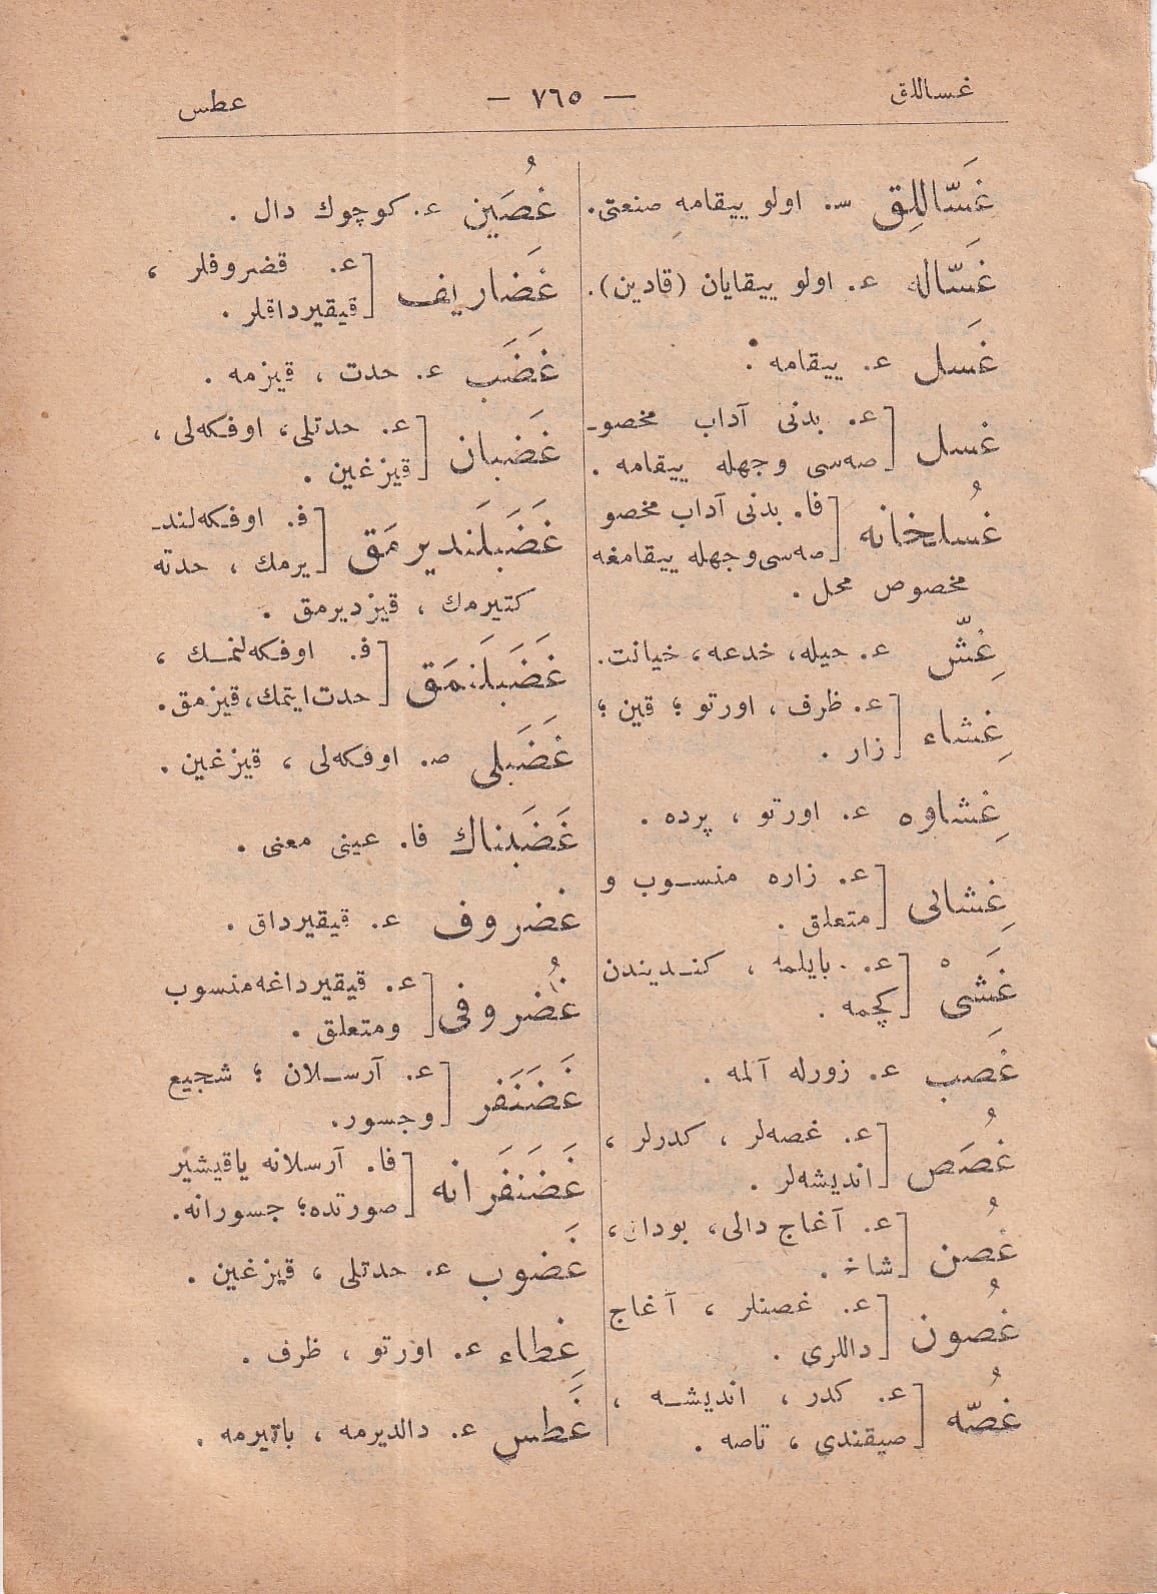 غسالق
— ٧٦٥ —
عطس
غَسّاللِق س. اولو ييقامه صنعتى.
غَسّاله ع. اولو ييقايان (قادين).
غَسل ع. ييقامه.
غسل [ع. بدنى آداب مخصو-
صه‌سى وجهله ييقامه.
غُسلخانه [فا. بدنى آداب مخصو
صه‌سى وجهله ييقامغه
مخصوص محل.
غِشّ ع. حيله، خدعه، خيانت.
غِشاء [ع. ظرف، اورتو؛ قين؛
زار.
غِشاوه ع. اورتو، پرده.
غِشائى [ع. زاره منسوب و
متعلق.
غَشْى [ع. بايلمه، كنديندن
كچمه.
غَصب ع. زورله آلمه.
غُصَص [ع. غصه‌لر، كدرلر،
انديشه‌لر.
غُصن [ع. آغاج دالى، بوداق،
شاخ.
غُصون [ع. غصنلر، آغاج
داللرى.
غُصّه [ع. كدر، انديشه،
صيقندى، تاصه.
غُصَين ع. كوچوك دال.
غَضاريف [ع. قضروفلر،
قيقيرداقلر.
غَضَب ع. حدت، قيزمه.
غَضبان [ع. حدتلى، اوفكه‌لى،
قيزغين.
غَضَبلَنديرمَق [ف. اوفكه‌لند-
يرمك، حدته
كتيرمك، قيزديرمق.
غَضَبلَنمَق [ف. اوفكه‌لنمك،
حدت ايتمك، قيزمق.
غَضَبلى ص. اوفكه‌لى، قيزغين.
غَضَبناك فا. عينى معنى.
غضروف ع. قيقيرداق.
غُضروفى [ع. قيقيرداغه منسوب
ومتعلق.
غَضَنَفر [ع. آرسلان؛ شجيع
وجسور.
غَضَنفَرانه [فا. آرسلانه ياقيشير
صورتده؛ جسورانه.
غَضوب ع. حدتلى، قيزغين.
غِطاء ع. اورتو، ظرف.
غَطس ع. دالديرمه، باتيرمه.